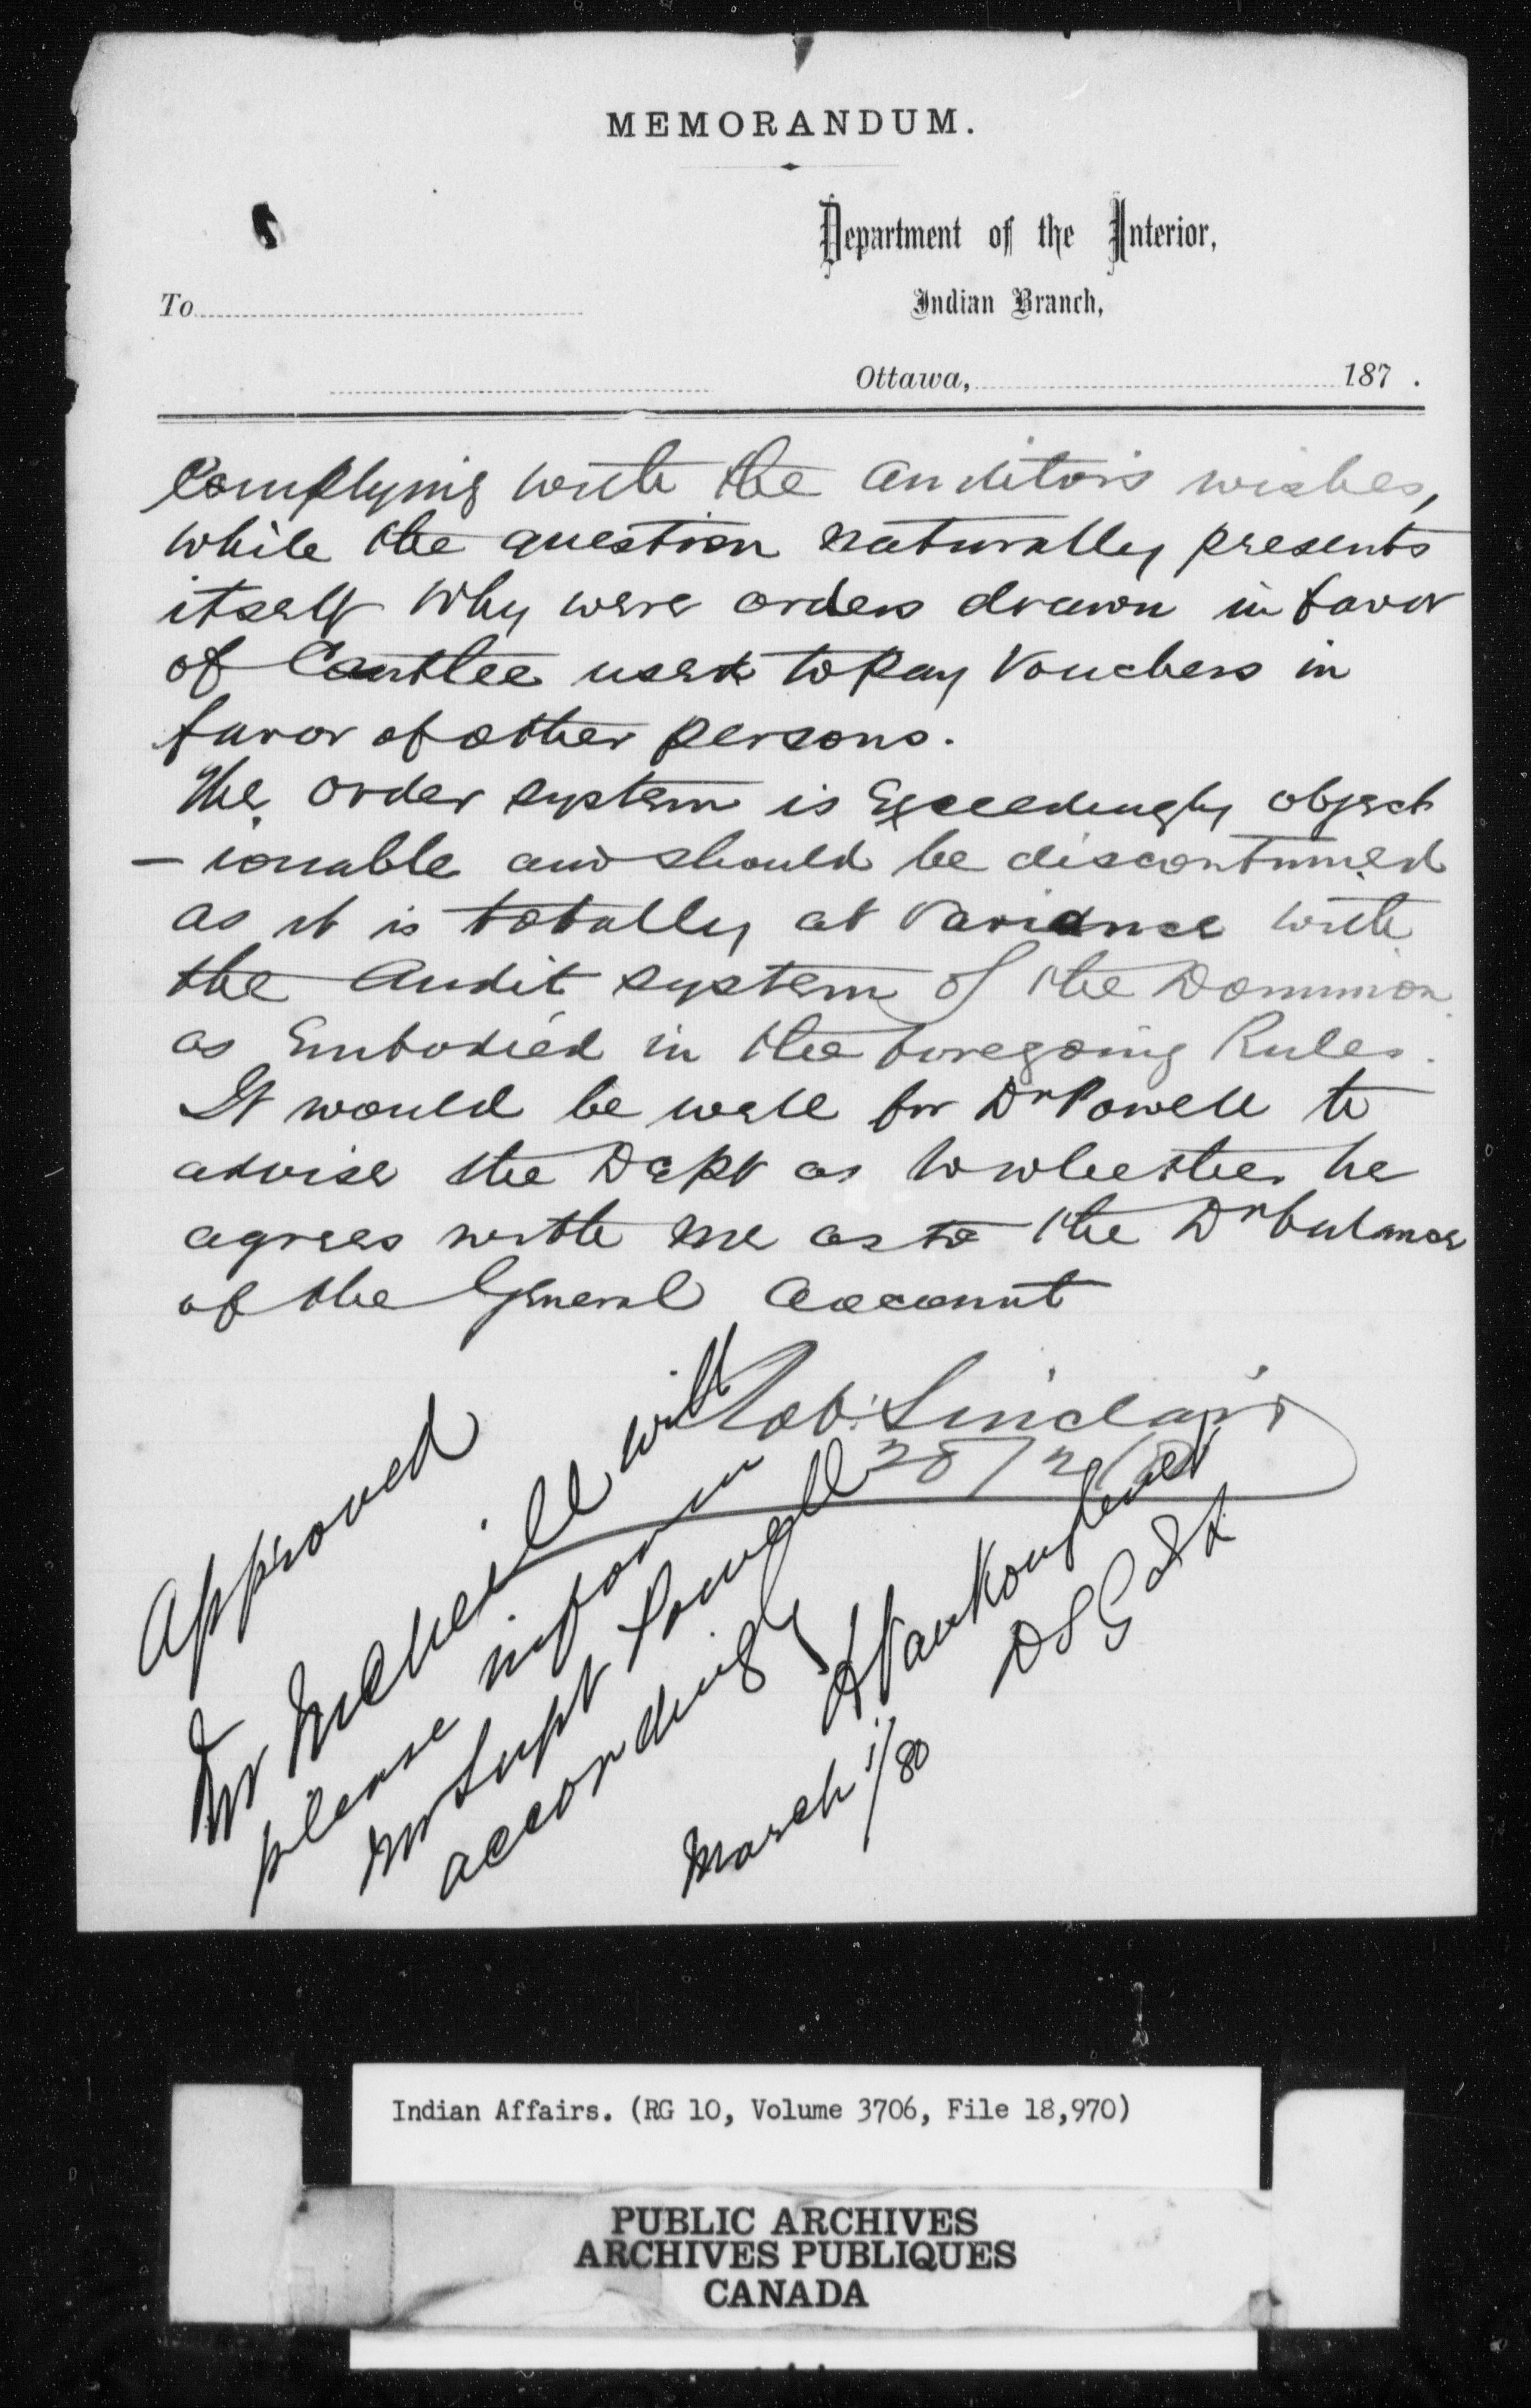 MEMORANDUM.
Department of the Interior,
Indian Branch,
To
Ottawa, 187 .
Complying with the Auditor's wishes,
while the question naturally presents
itself Why were orders drawn in favor
of Cantlee used to Pay Vouchers in
favor of other persons.
The order system is Exceedingly object
- ionable and should be discontinued
as it is totally at variance with
the Audit system of the Dominion
as Embodied in the foregoing Rules.
It would be well for Dr Powell to
advise the Dept as to whether he
agrees with me as to the Dr balance
of the General Account
Rob. Sinclair
28/2/80
Approved
Mr McNeill will
please inform
Mr Supt Powell
accordingly
LVankoughnet
DSG of I A
March 1/80
Indian Affairs. (RG 10, Volume 3706, File 18,970)
PUBLIC ARCHIVES
ARCHIVES PUBLIQUES
CANADA